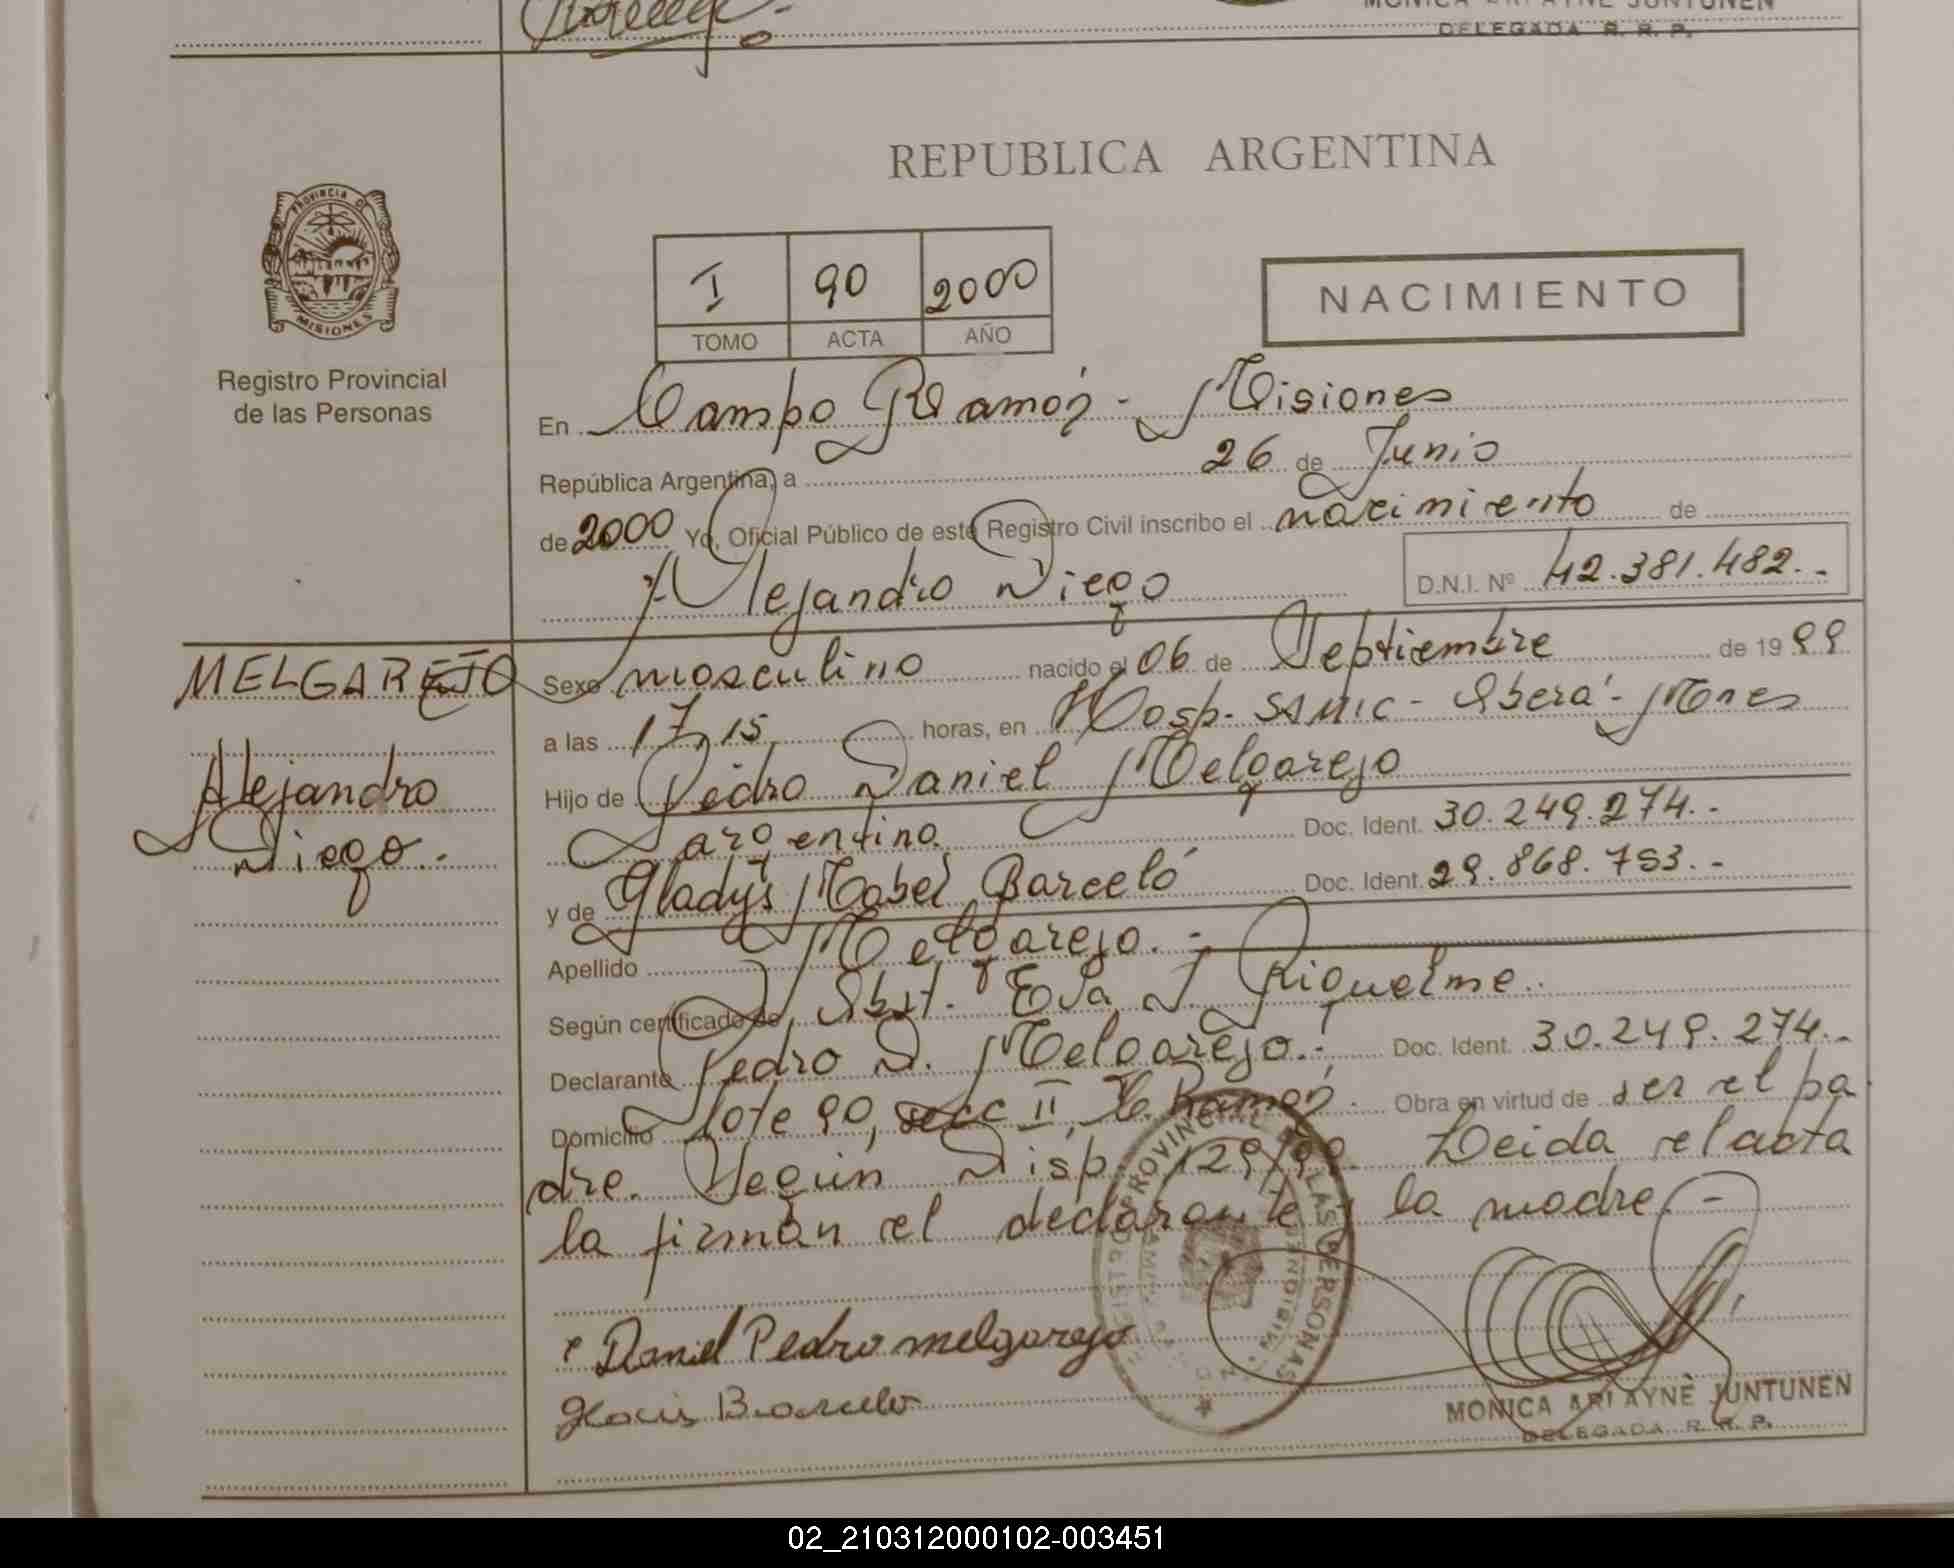 MONICA ARLAYNE JUNTUNEN
DELEGADA R. R. P.
PROVINCIA D
MISIONES
Registro Provincial
de las Personas
REPUBLICA ARGENTINA
I 90 2000
TOMO ACTA AÑO
NACIMIENTO
En Campo Ramón - Misiones
República Argentina, a 26 de Junio
de 2000 Yo, Oficial Público de este Registro Civil inscribo el nacimiento de
Alejandro Diego D.N.I. Nº 42.381.482.-
MELGAREJO
Alejandro
Diego.-
Sexo masculino nacido el 06 de Septiembre de 1999
a las 17,15 horas, en Hosp. SAMIC - Oberá - Mnes
Hijo de Pedro Daniel Melgarejo
argentino. Doc. Ident. 30.249.274.-
y de Gladys Mabel Barceló Doc. Ident. 29.868.753.-
Apellido Melgarejo.-
Según certificado de Obst. Eva J. Riquelme.
Declarante Pedro D. Melgarejo.- Doc. Ident. 30.249.274.-
Domicilio Lote 90, secc II, C. Ramón. Obra en virtud de ser el pa
dre. Según Disp. 129/99. Leida el acta
la firman el declarante y la madre.-
Daniel Pedro melgarejo
Barcelo
REGISTRO PROVINCIAL DE LAS PERSONAS
MISIONES
MONICA ARLAYNE JUNTUNEN
DELEGADA R. R. P.
02_210312000102-003451